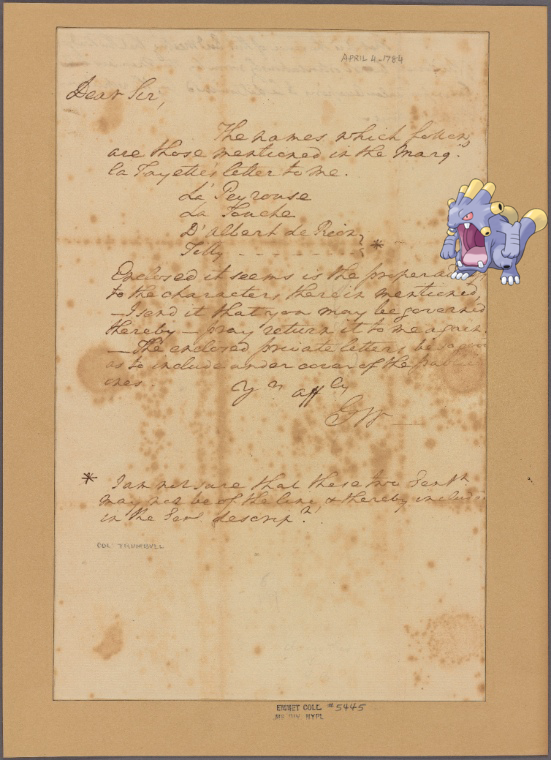 APRIL 4. 1784
Dear Sir,
The names which
are those mentioned in the Marq.
la Fayette's letter to me.
La Peyrouse
La Touche
D'albert de Rion
Tilly - - - - - } *
Enclosed it seems is the
to the characters therein mentioned
—I send it that you may be governed
thereby—pray return it to me again.
—The enclosed private letters be so
as to include under cover of the
ones.
Yr affly
GW—
* I am not sure that these two Gentn
may not be of the line & thereby
in the Genl descripn.
COL. TRUMBULL
EMMET COLL #5445
MS DIV. NYPL